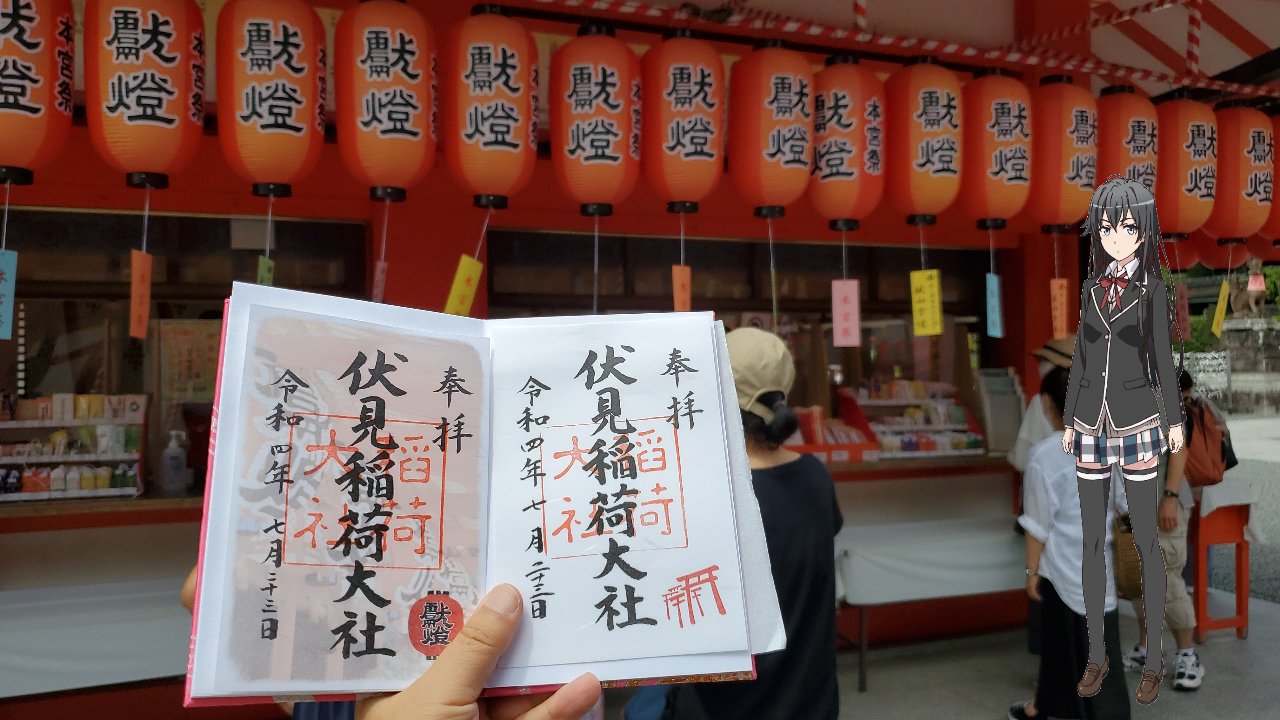 獻燈
本宮祭
獻燈
本宮祭
獻燈
本宮祭
獻燈
獻燈
獻燈
獻燈
獻燈
獻燈
本宮祭
獻燈
獻燈
獻燈
獻燈
獻燈
獻燈
本宮祭
本宮祭
奉拝
伏見稲荷大社
稲荷
大社
令和四年 七月二十三日
奉拝
伏見稲荷大社
稲荷
大社
令和四年 七月二十三日
獻燈